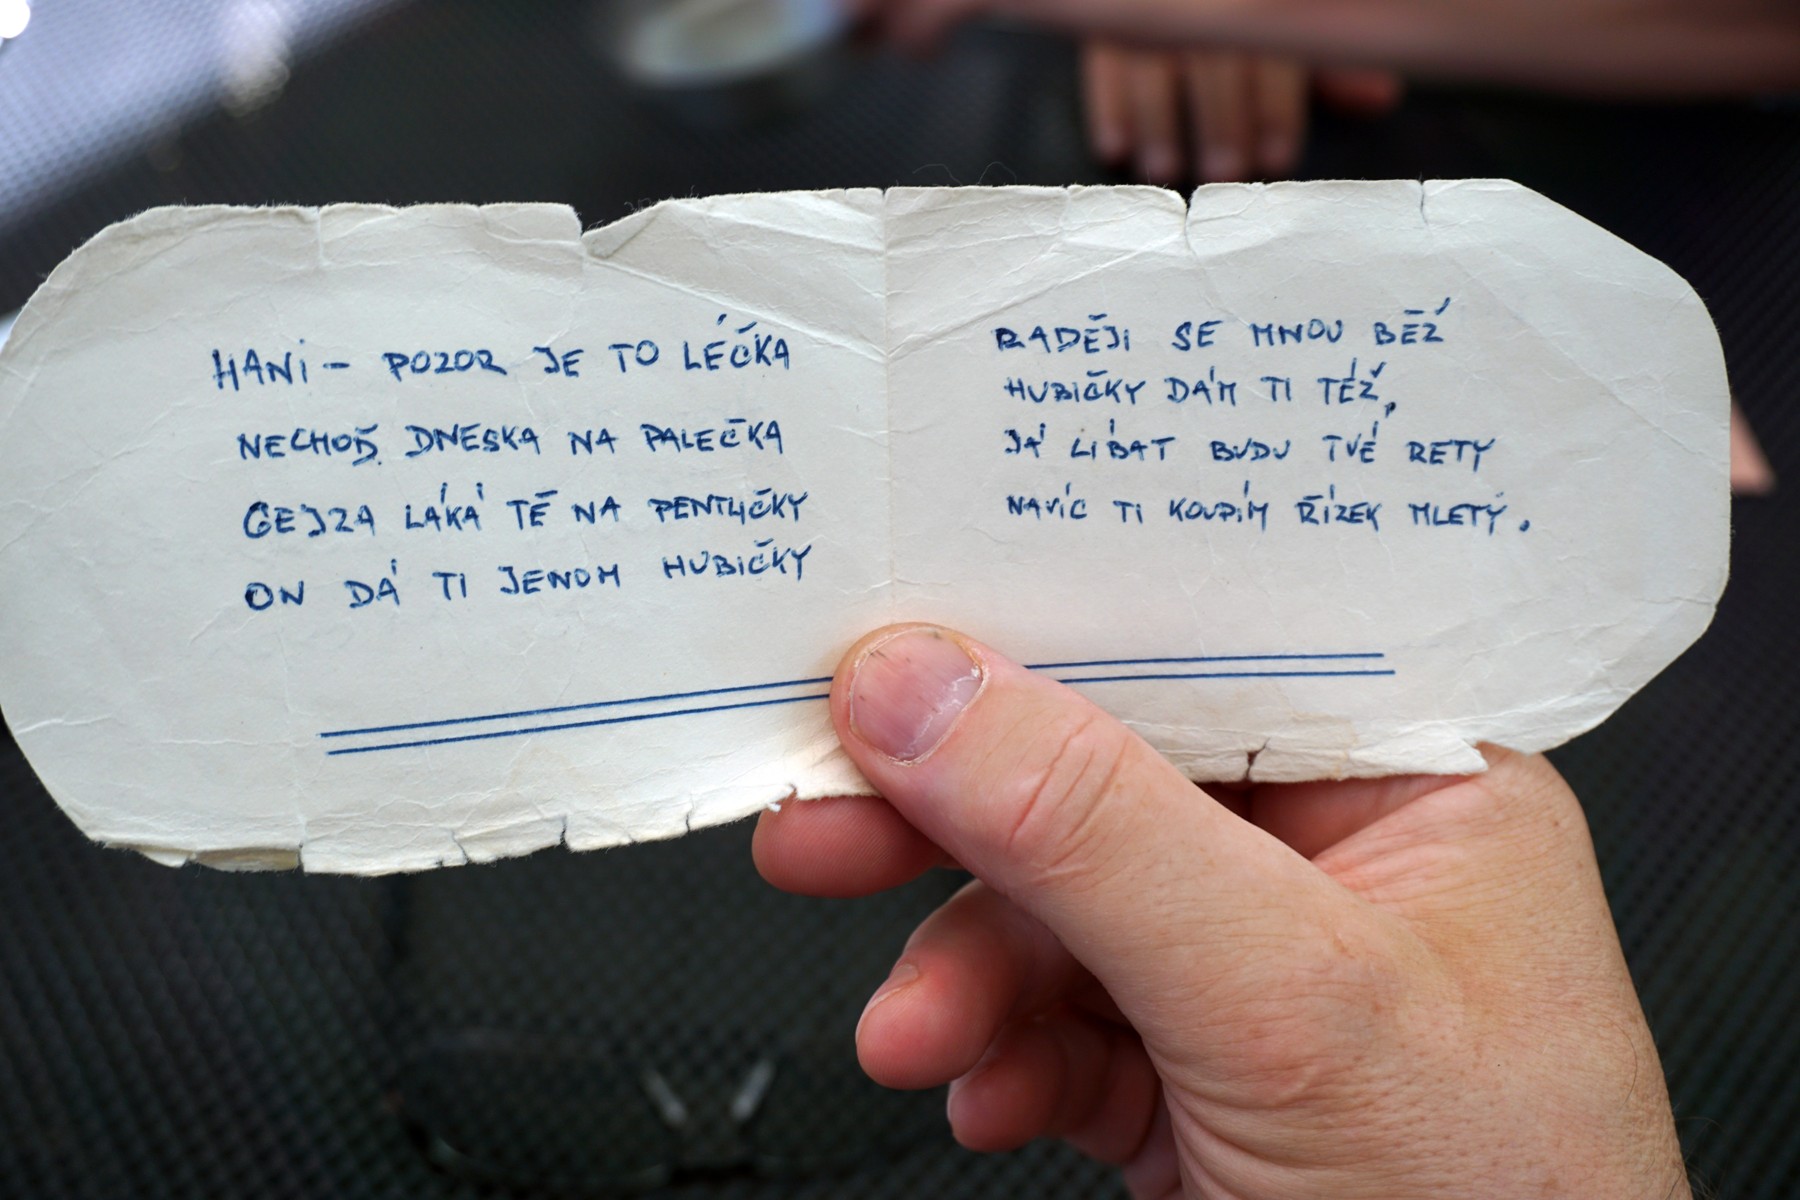 HANI – POZOR JE TO LÉČKA
NECHOĎ DNESKA NA PALEČKA
GEJZA LÁKÁ TĚ NA PENTLIČKY
ON DÁ TI JENOM HUBIČKY
RADĚJI SE MNOU BĚŽ
HUBIČKY DÁM TI TÉŽ,
JÁ LÍBAT BUDU TVÉ RETY
NAVÍC TI KOUPÍM ŘÍZEK MLETÝ.